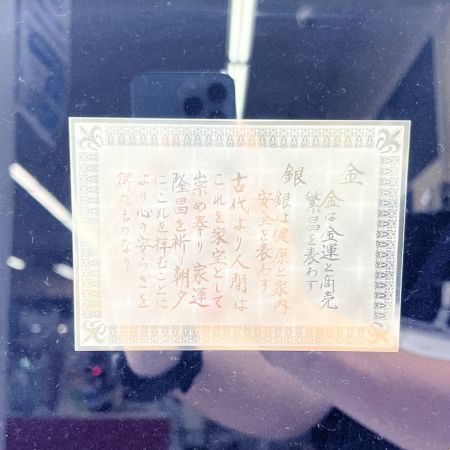 金
金は金運と商売
繁昌を表わす
銀
銀は健康と家内
安全を表わす
古代より人間は
これを家宝として
崇め奉り家運
隆昌を祈り朝夕
にこれを拝むことに
より心の安らぎを
得たものなり